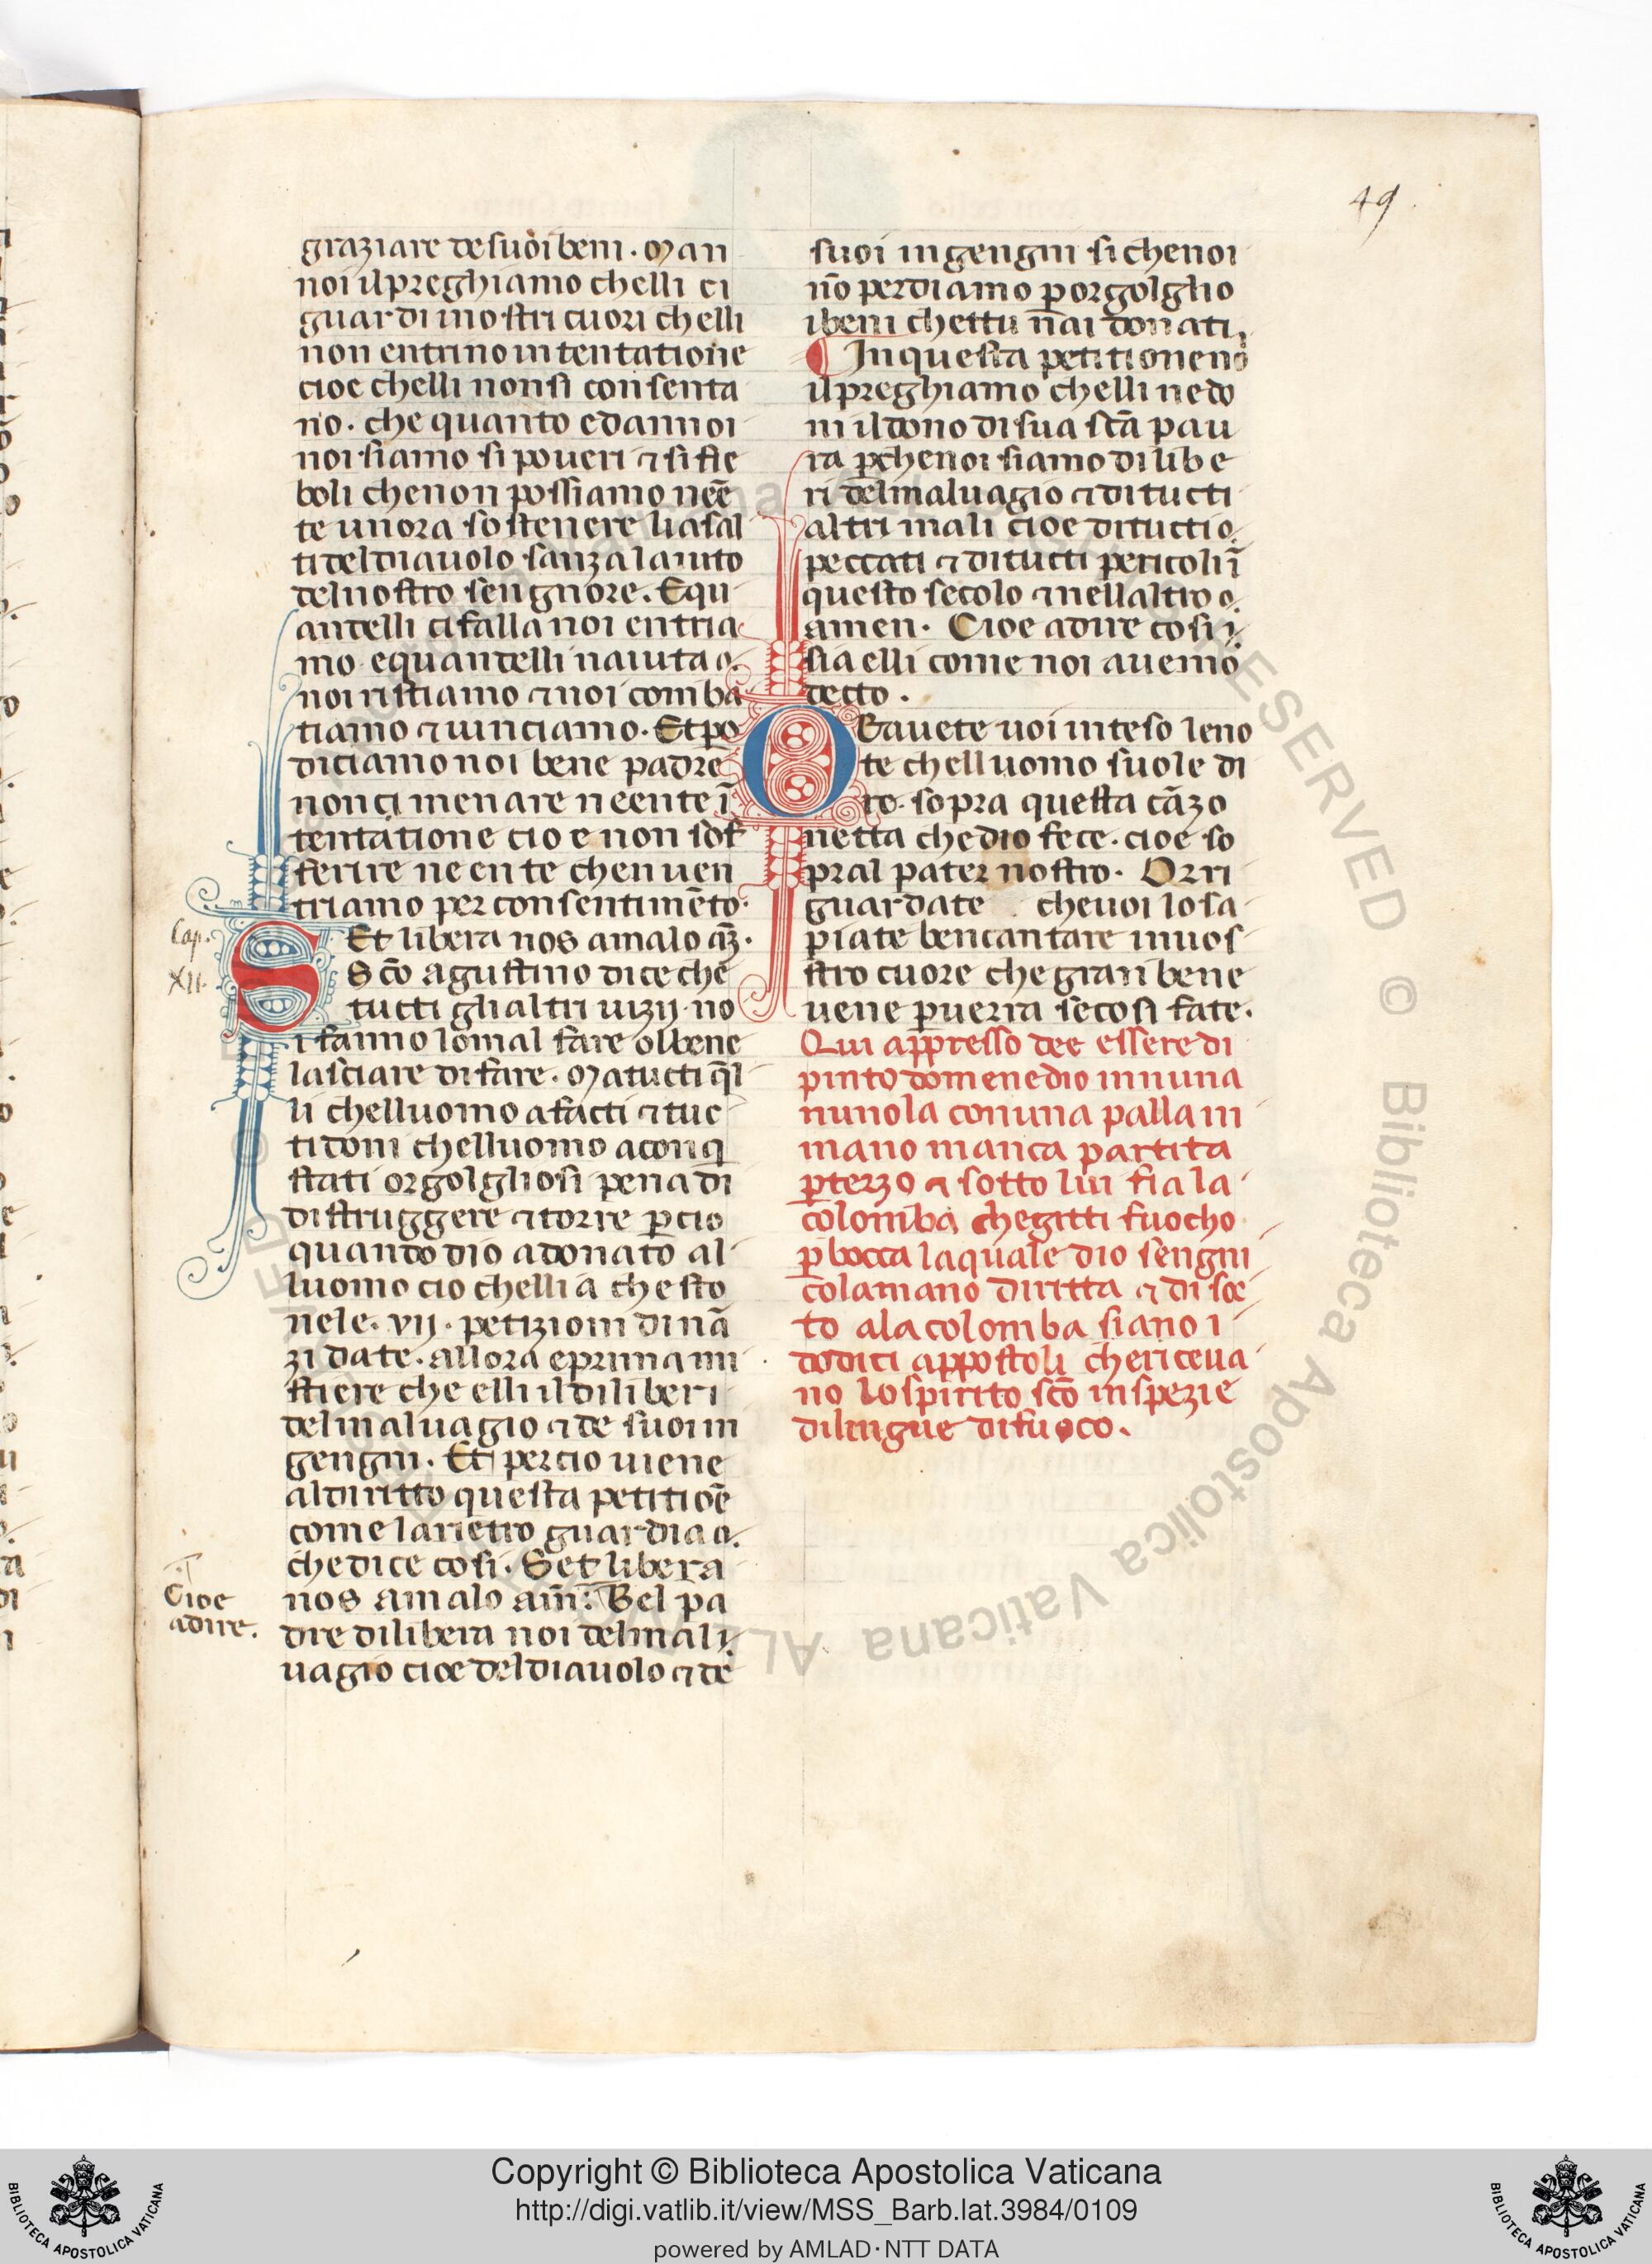 49
graziare de suoi beni. Man
noi il preghiamo chelli ci
guardi i nostri cuori chelli
non entrino in tentatione
cioe chelli non si consenta
no. che quanto e da nnoi
noi siamo si poveri ⁊ si fie
boli che non possiamo neē
te unora sostenere li asal
ti del diavolo sanza laiuto
del nostro sengnore. Equ
antelli ci falla noi entria
mo equantelli naiuta
noi ristiamo ⁊ noi comba
tiamo ⁊ uinciamo. Et po
diciamo noi bene padre
non ci menare neente ī
tentatione cio e non sof
ferire neente che nuen
triamo per consentimēto.
Cap.
XII.
Et libera nos a malo
Sc̄o agustino dice che
tucti gli altri uizij. no
i fanno lo mal fare ol bene
lasciare di fare. Ma tucti q̄l
li chelluomo a facti ⁊ tuc
ti doni chelluomo a conq
stati orgolgliosi pena di
distruggere ⁊ torre p̄ cio
quando dio a donato al
luomo cio chelli a chesto
nele. vij. petizioni dinā
zi date. allora e prima mi
stiere che elli il diliberi
del maluagio ⁊ de suoi in
gengni. Et percio uiene
al diritto questa petitiōe
come la rietro guardia
che dice cosi. Set libera
nos a malo am̄: Bel pa
Cioe
adire.
dre dilibera noi del mal
uagio cioe del diauolo ⁊ de
suoi ingengni si che noi
nō perdiamo p̄ orgolglio
i beni chettu n̄ai donati
In questa petitione no
il preghiamo chelli ne do
ni il dono di sua sc̄a pau
ra p̄che noi siamo dilibe
ri del maluagio ⁊ di tucti
altri mali cioe di tucti
peccati ⁊ di tucti pericoli ī
questo secolo ⁊ nell altro
amen. Cioe a dire cosi
sia elli come noi auemo
detto.
Or auete uoi inteso le no
te chell uomo suole di
re. sopra questa cāzo
netta che dio fece. cioe so
pral pater nostro. Or ri
guardate che uoi lo sa
piate ben cantare in uos
stro cuore che gran bene
uene p̄uerra se cosi fate.
Qui appresso dee essere di
pinto domenedio in nuna
nuuola con una palla in
mano manca partita
p̄ terzo ⁊ sotto lui sia la
colomba che gitti fuocho
p̄ bocca la quale dio sengni
cola mano diritta ⁊ di soc
to a la colomba siano i
dodici appostoli che riceua
no lo spirito sc̄o in spezie
di lingue di fuoco.
Copyright © Biblioteca Apostolica Vaticana
http://digi.vatlib.it/view/MSS_Barb.lat.3984/0109
powered by AMLAD·NTT DATA